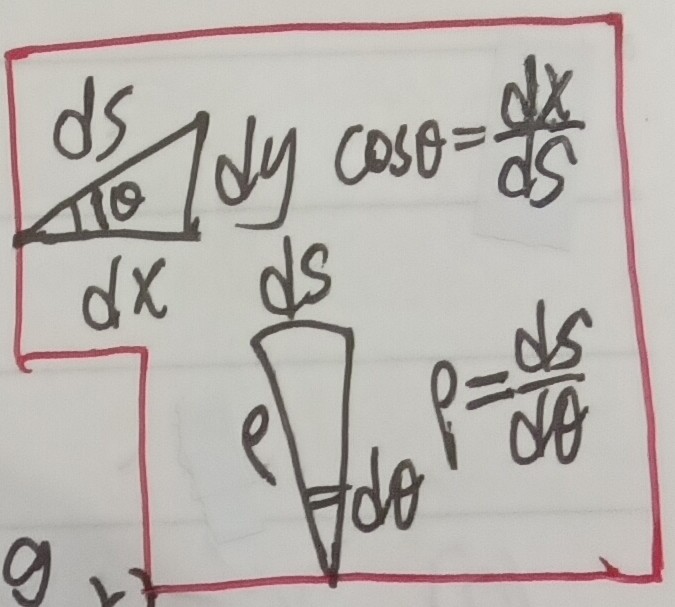 ds
θ
dy
cosθ = dx/ds
dx
ds
ρ
dθ
ρ = ds/dθ
g